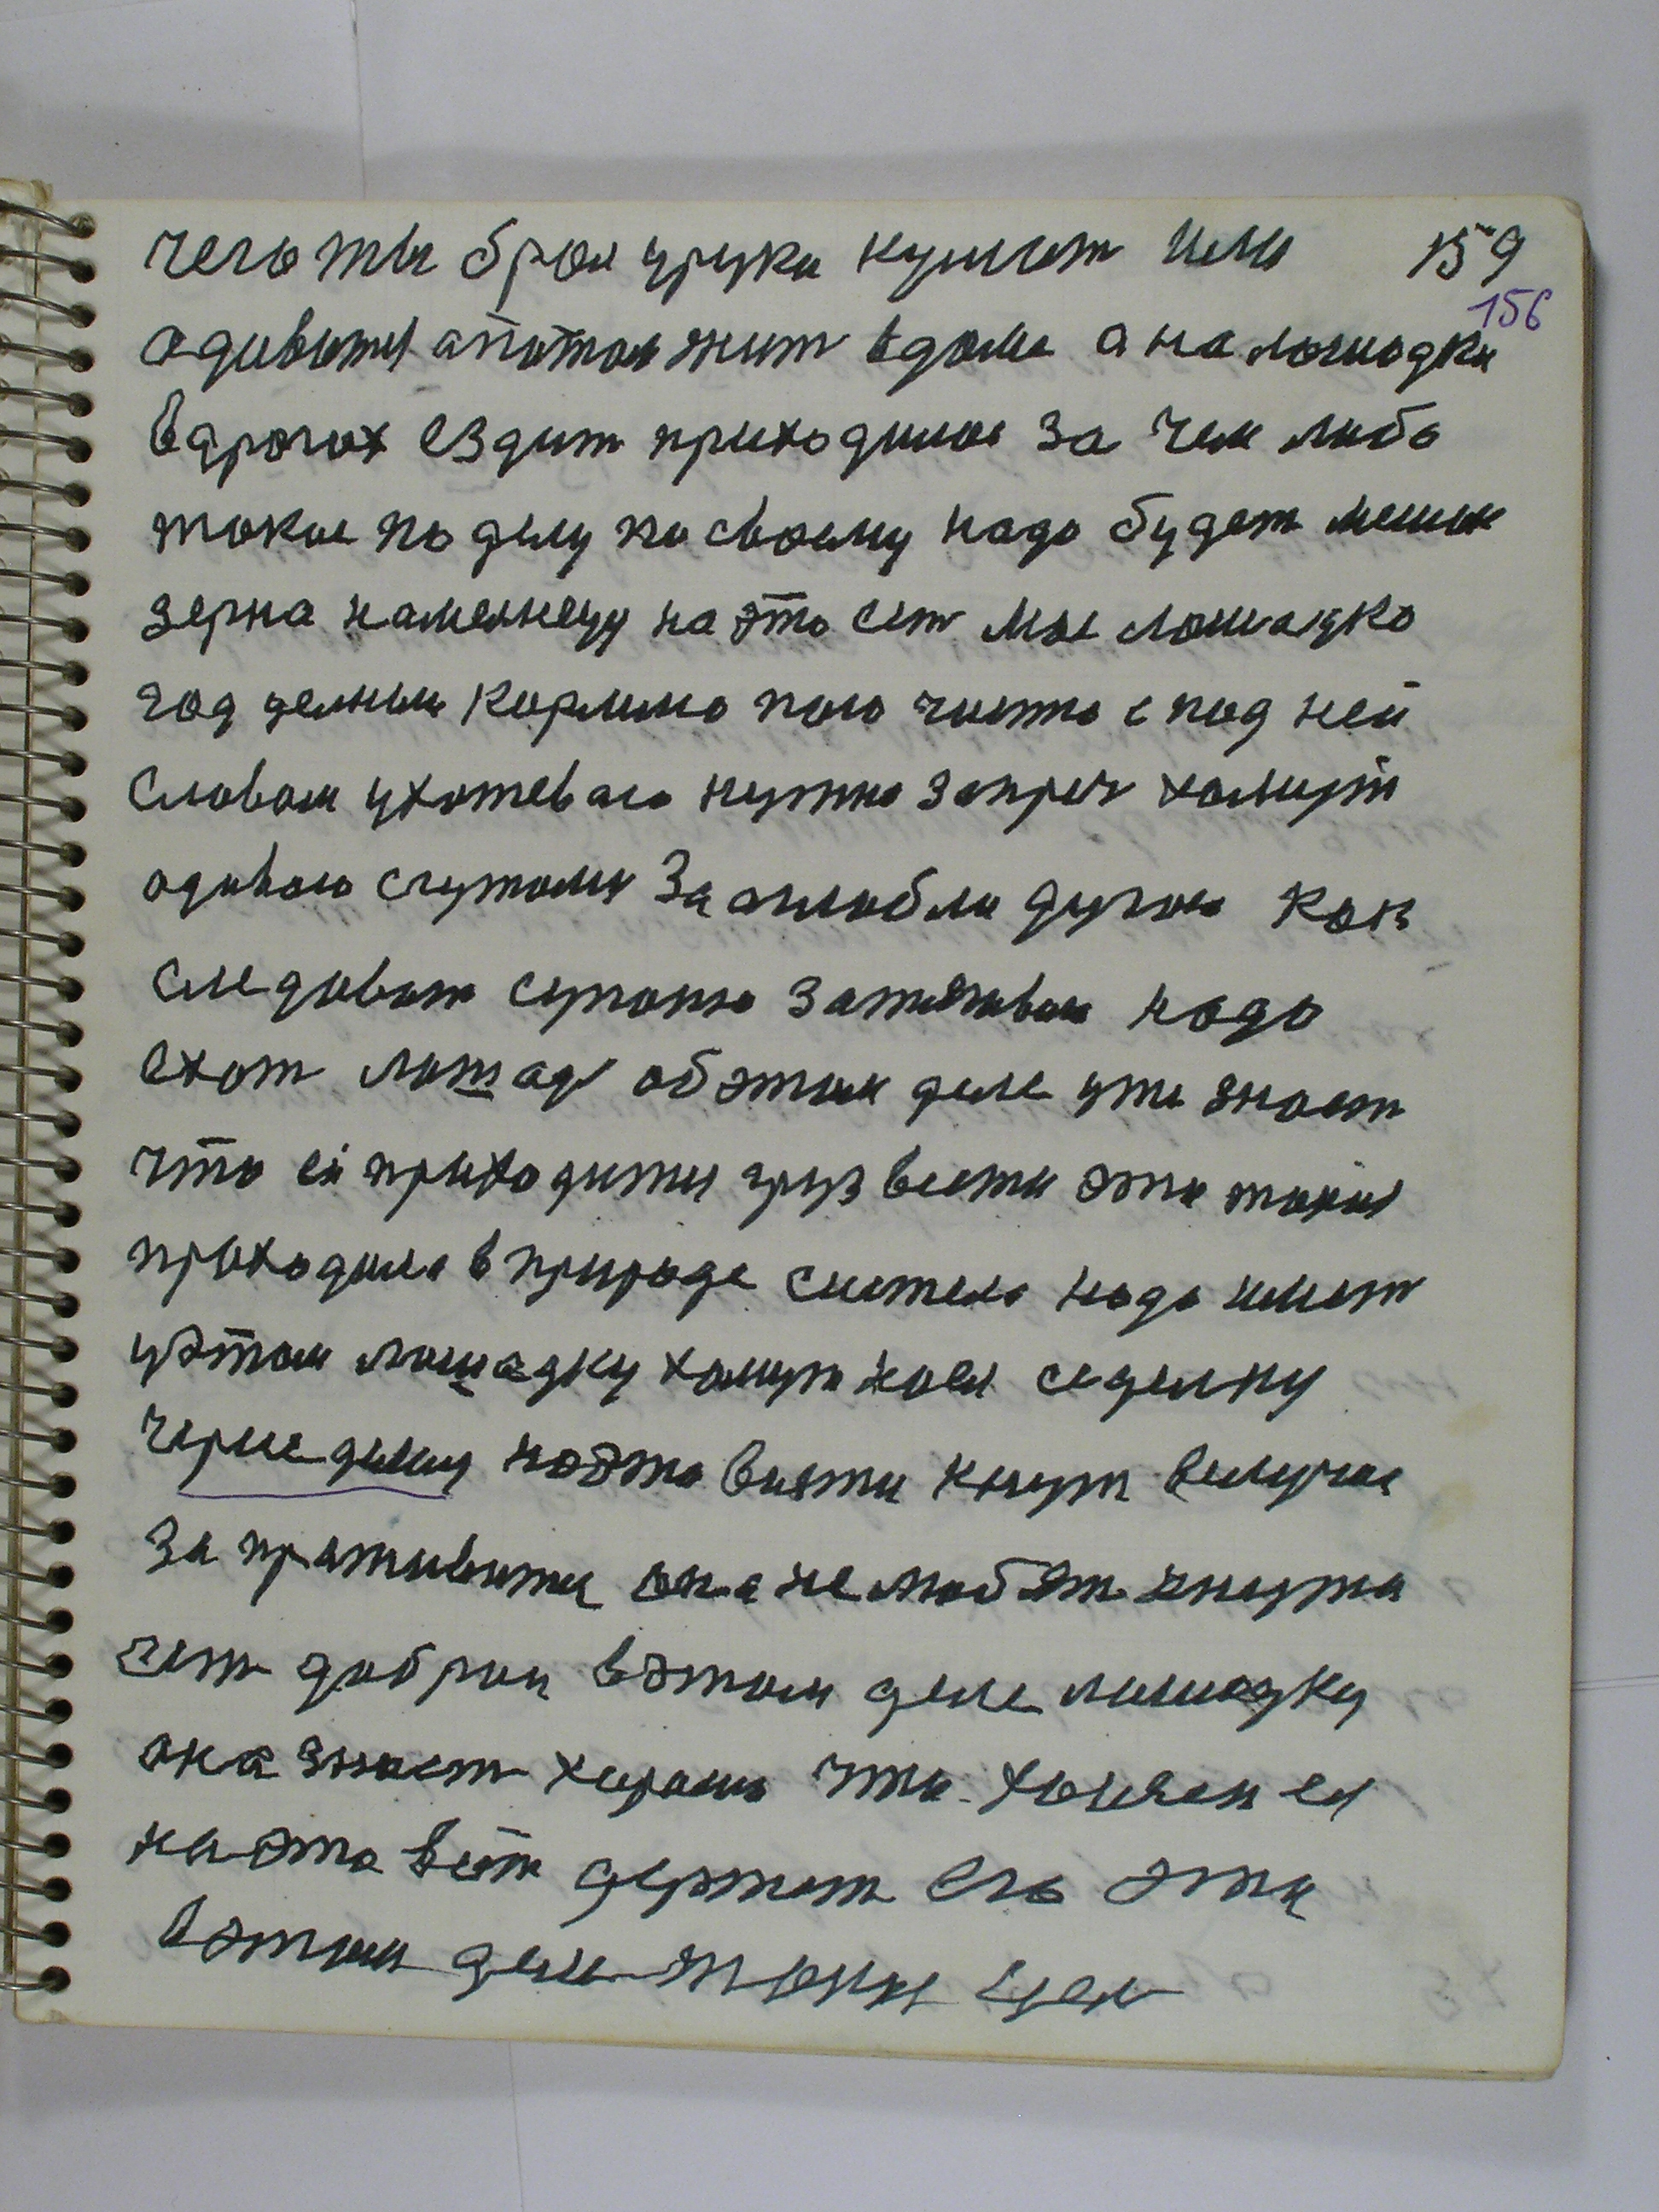 чего ты брал у руки кушает ими 159
156
одивится а потом жит в доме а на лошадки
в дрогах ездит приходимое за чем либо
такое по делу по своему надо будет мешок
зерна намельницу на это сет мое лошадка
год целным кормимо пою чисто с под ней
словом ухотеваю нужно запреч хомут
одиваю с гужами за аглобли дугою как
следоват супоню затягиваю надо
ехат лошад об этом деле уже знает
что ей приходится груз вести эти такия
проходила в природе система надо имет
у этом лошадку хомут на ея седелку
черисделну на это вожти кнут в случае
за пративится она не любят кнута
сет доброи в этом деле лошадку
она знает хорошо что хозяен ея
на это вот держит его эти
в этом деле такия идея